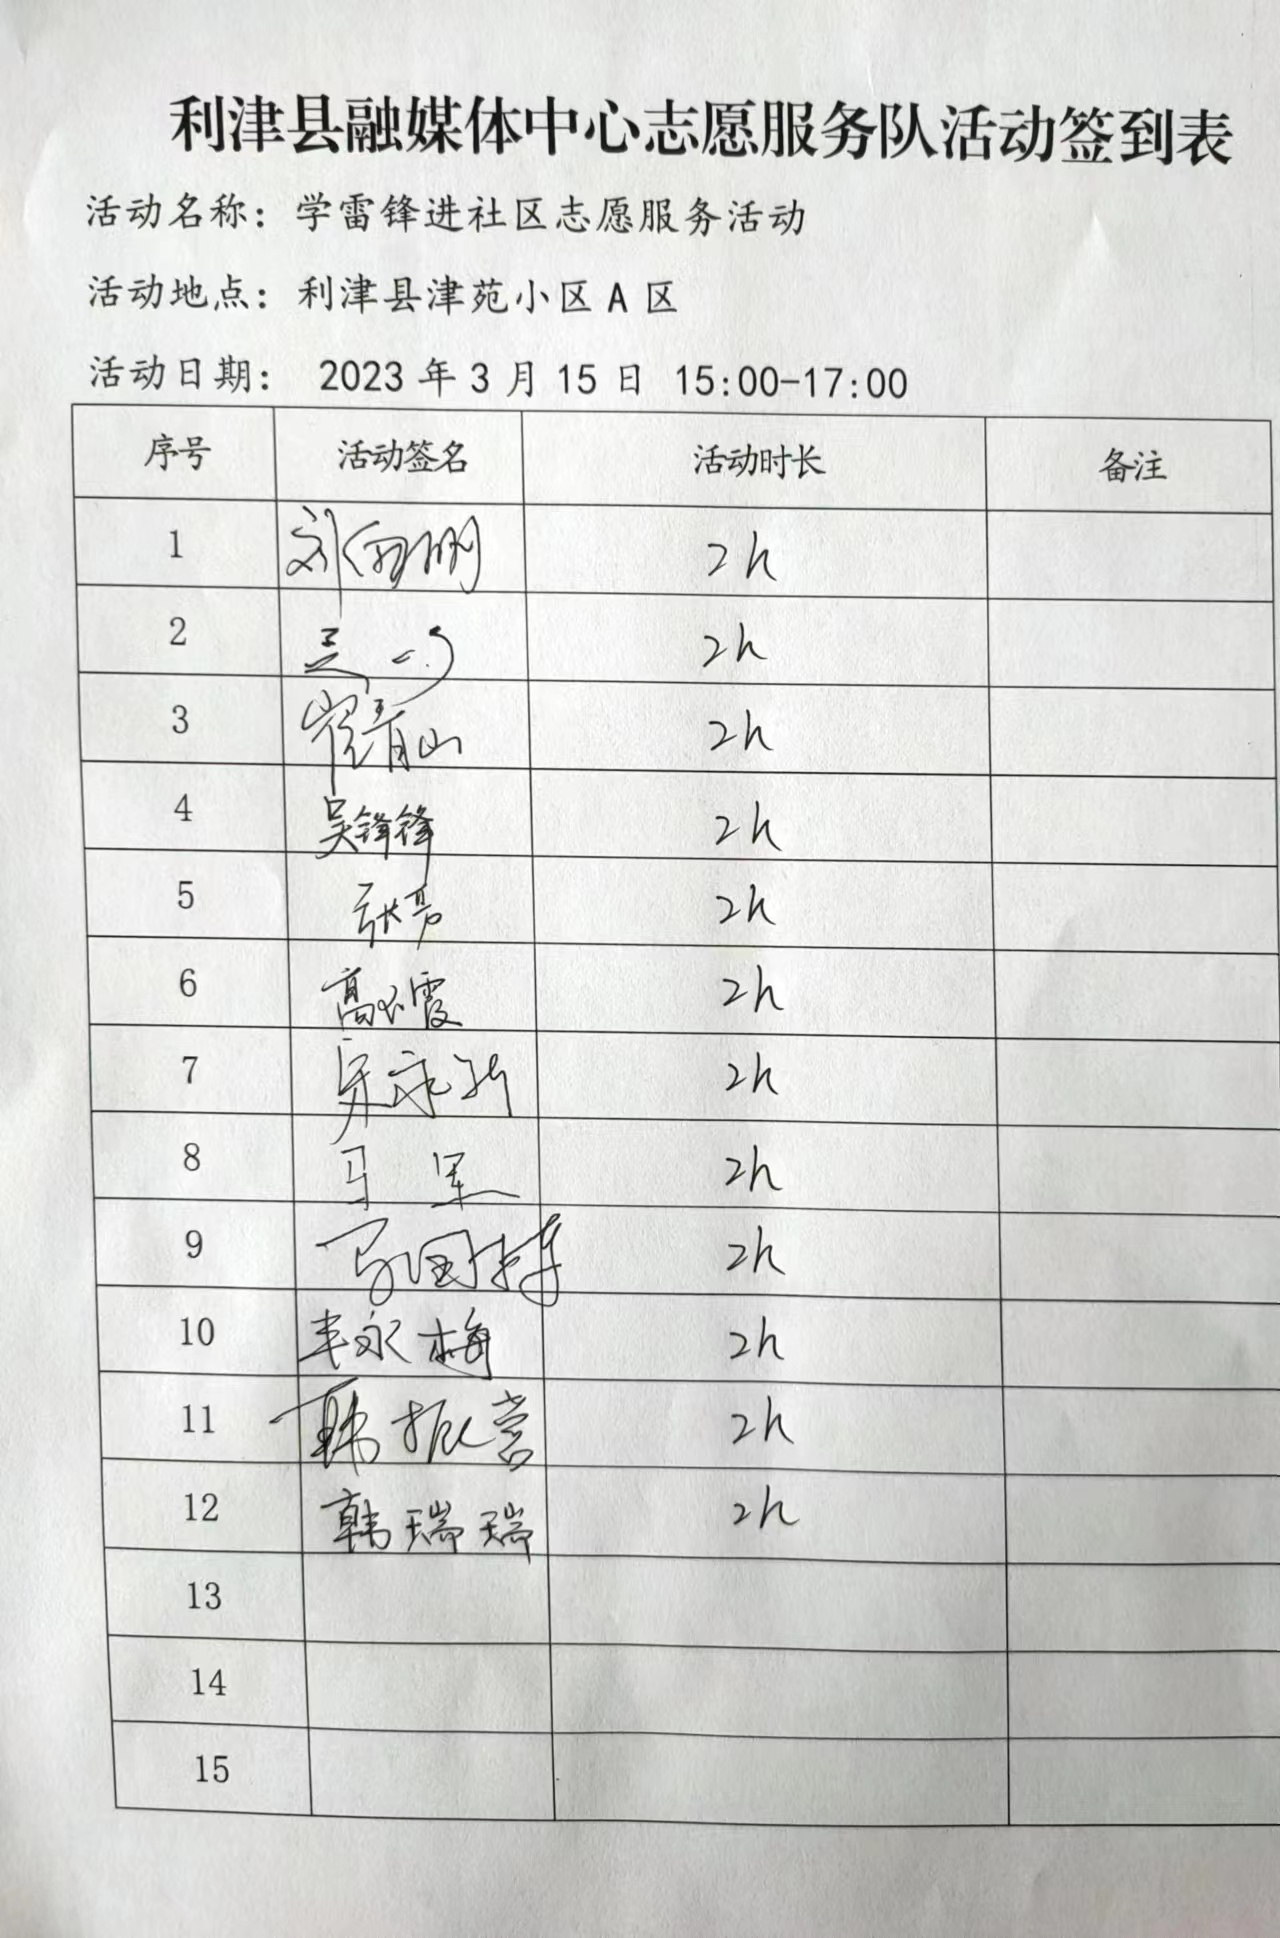 利津县融媒体中心志愿服务队活动签到表
活动名称：学雷锋进社区志愿服务活动
活动地点：利津县津苑小区 A 区
活动日期： 2023 年 3 月 15 日 15:00-17:00
序号 活动签名 活动时长 备注
1 刘 2h
2 2h
3 崔青山 2h
4 吴锋锋 2h
5 张亮 2h
6 高 霞 2h
7 2h
8 马军 2h
9 马国栋 2h
10 永梅 2h
11 韩振营 2h
12 韩瑞瑞 2h
13
14
15